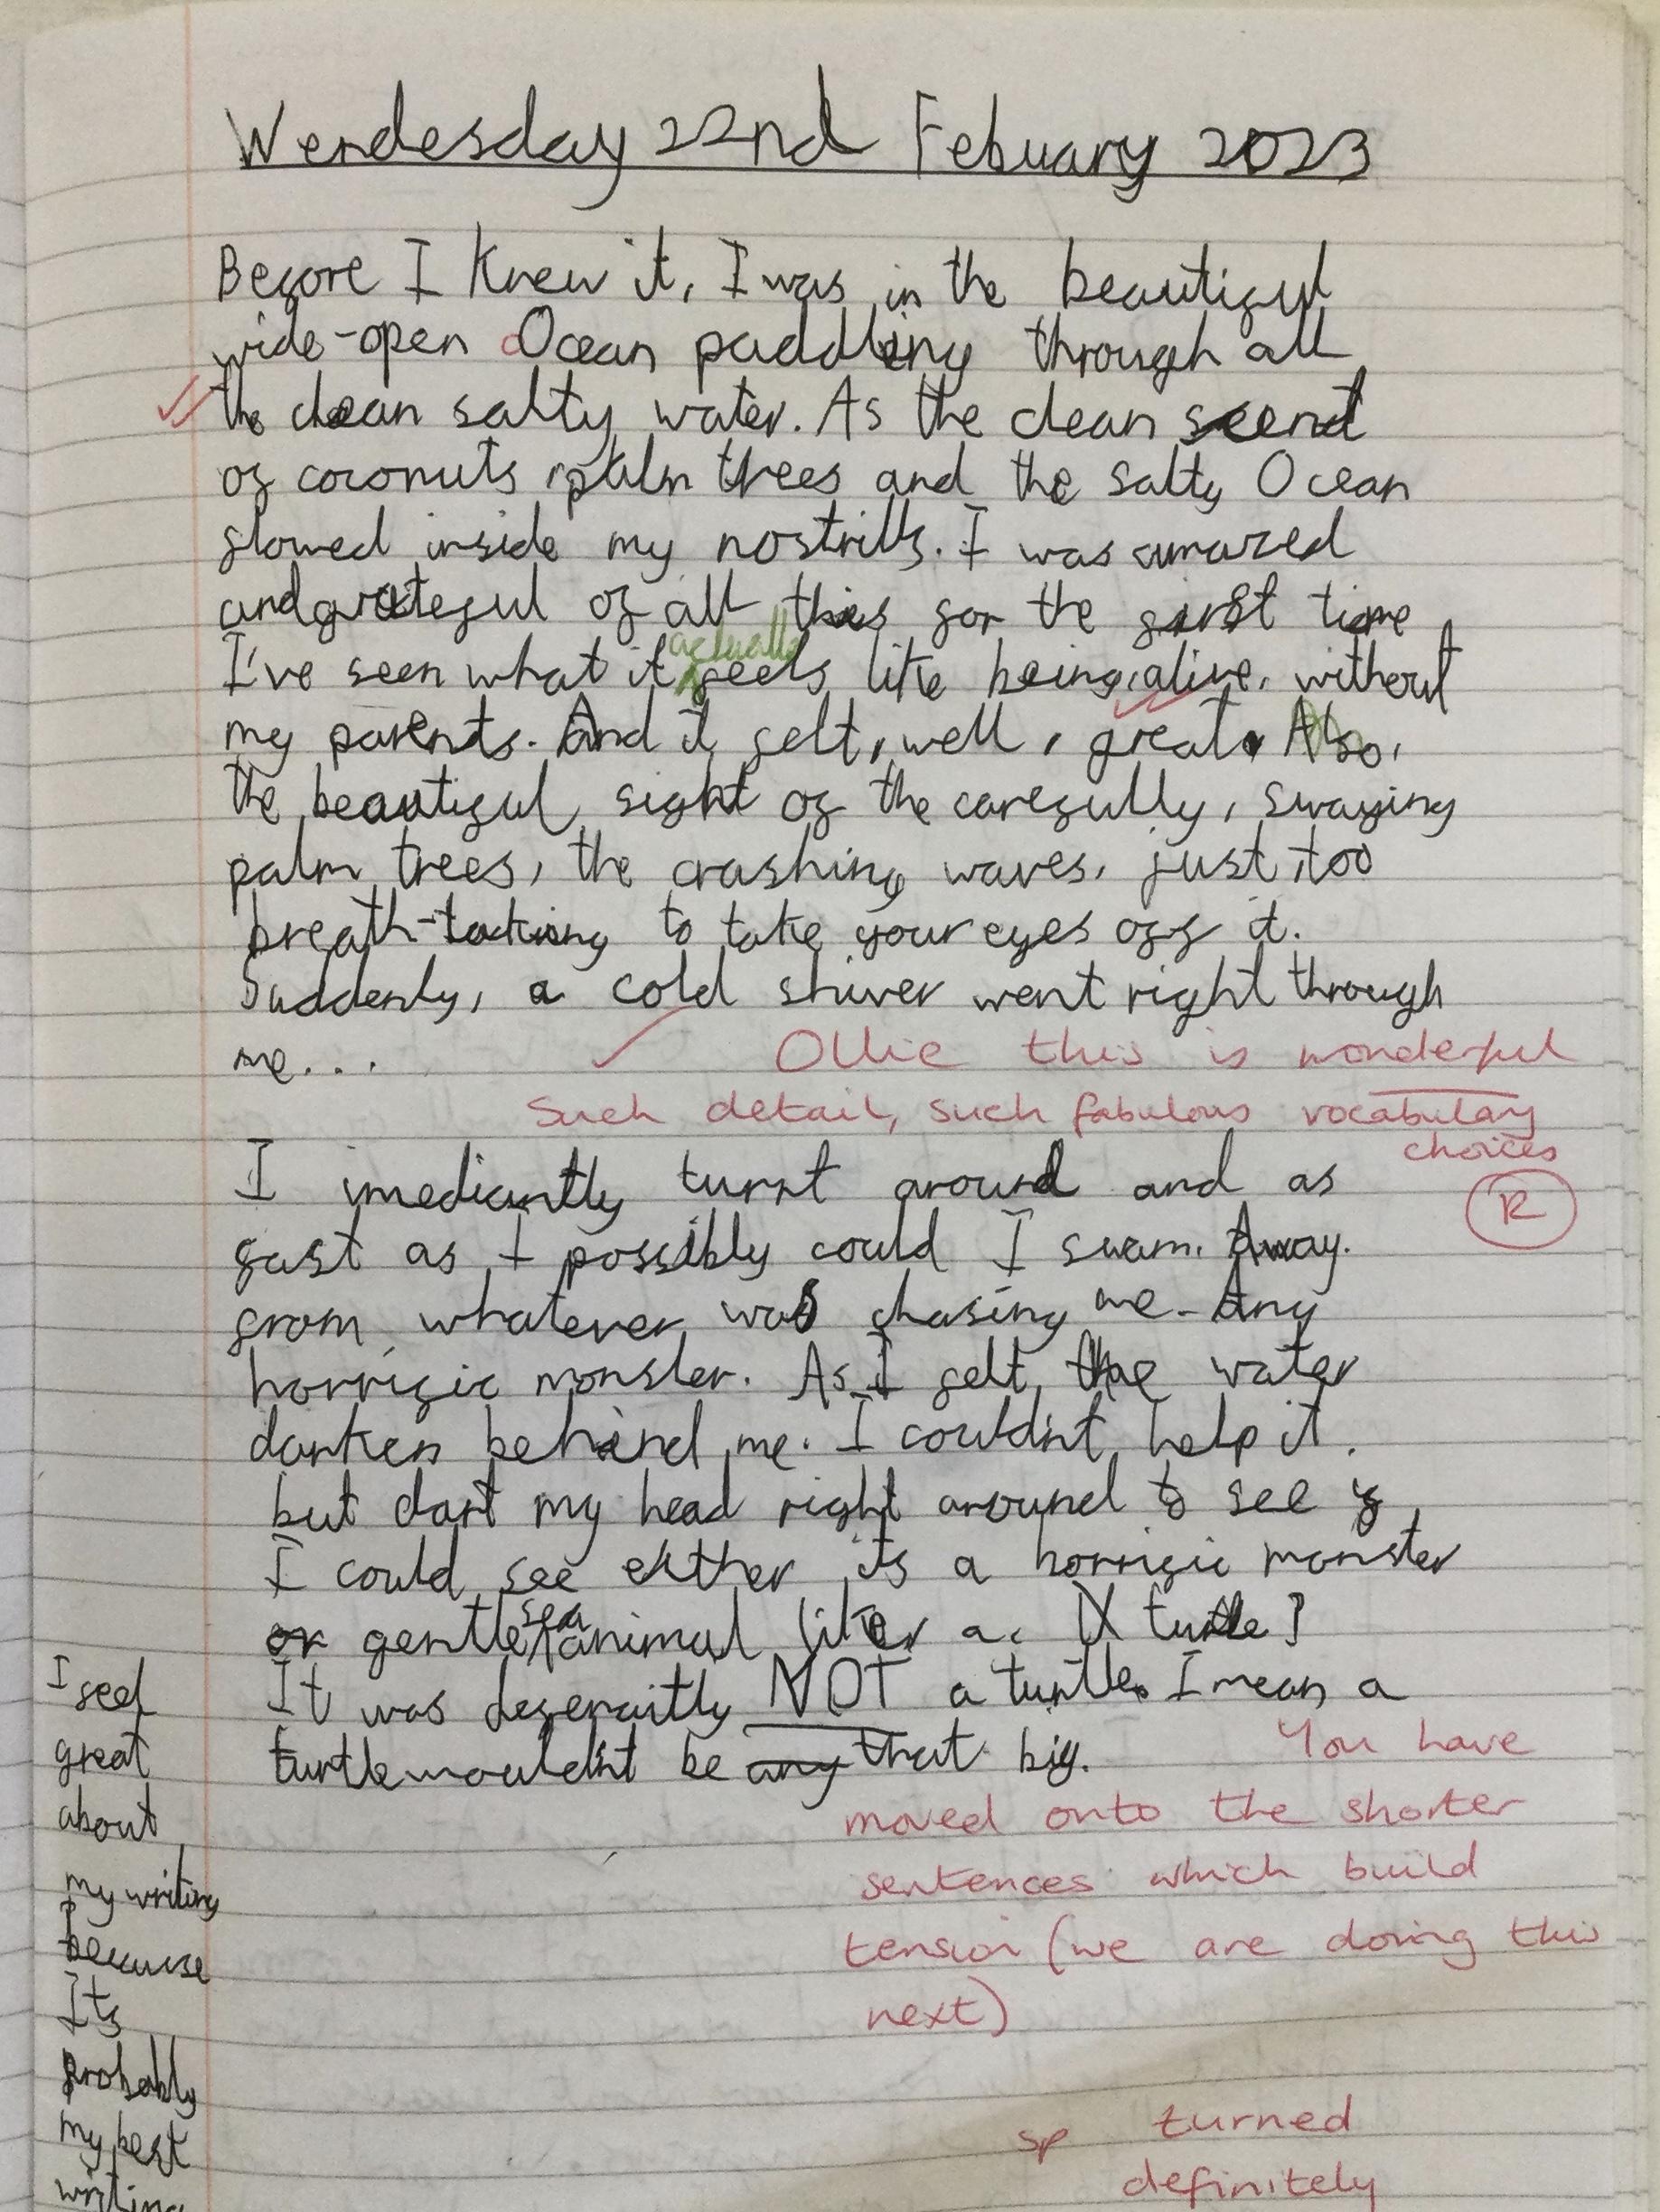 Wendesday 22nd Febuary 2023
Before I knew it, I was in the beautiful
wide-open Ocean paddling through all
the clean salty water. As the clean scent
of coconuts, palm trees and the salty Ocean
flowed inside my nostrils. I was amazed
and grateful of all this for the first time
actually
I've seen what it feels like being, alive, without
my parents. And it felt, well, great. Also,
the beautiful sight of the carefully, swaying
palm trees, the crashing waves, just too
breath-taking to take your eyes off it.
Suddenly, a cold shiver went right through
me...
Ollie this is wonderful
Such detail, such fabulous vocabulary
choices
R
I imediantly turnt around and as
fast as I possibly could I swam. Away.
from whatever was chasing me - Any
horrific monster. As I felt the water
darken behind me. I couldn't help it.
but dart my head right around to see if
I could see either its a horrific monster
or gentle sea animal like a. turtle?
It was defenaitly NOT a turtle. I mean a
turtle wouldn't be any that big.
You have
moved onto the shorter
sentences which build
tension (we are doing this
next)
I feel
great
about
my writing
because
Its
probably
my best
writing
sp turned
definitely